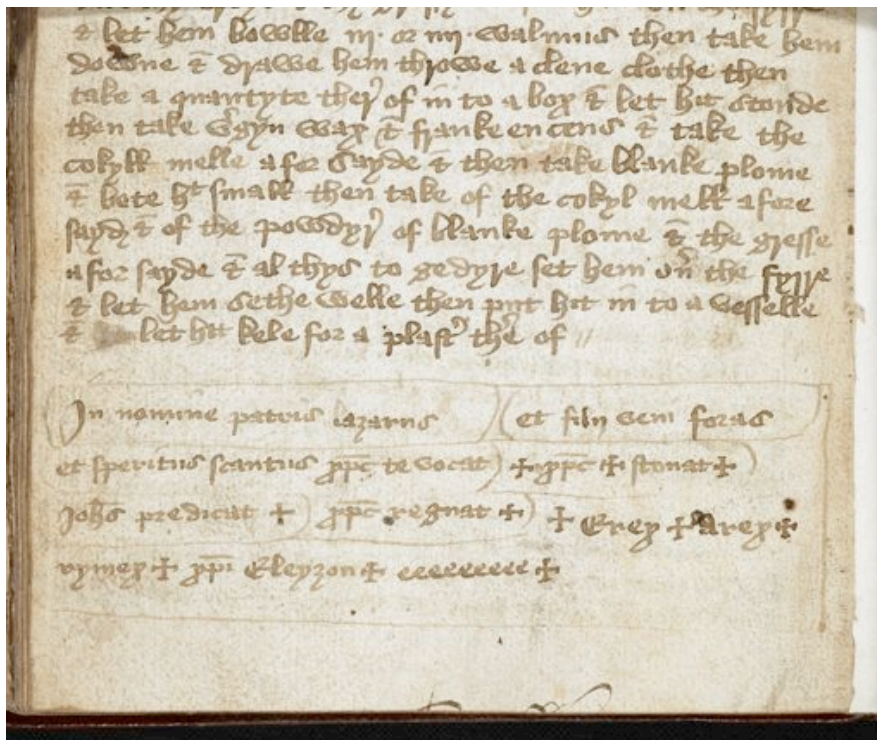 & let hem bowlle iij · or iiij · walmus then take hem
downe & drawe hem throwe a clene clothe then
take a quantyte ther of in to a box & let hit stonde
then take vgyn wax & frankencens & take the
cokyll melle afor sayde & then take blanke plome
& bete ht small then take of the cokyl mell afore
sayd & of the powdyr of blanke plome & the gresse
afor sayde & al thys to gedyre set hem on the fyrre
& let hem sethe welle then put hit in to a vesselle
& let hit kele for a plast ther of //
In nomine patris lazarus et filij veni foras
et speritus scantus xpc te vocat + xpc + stonat +
Johs predicat + xpc regnat + + Erex + Arex +
rymex + xpi Eleyzon + eeeeeeeee +